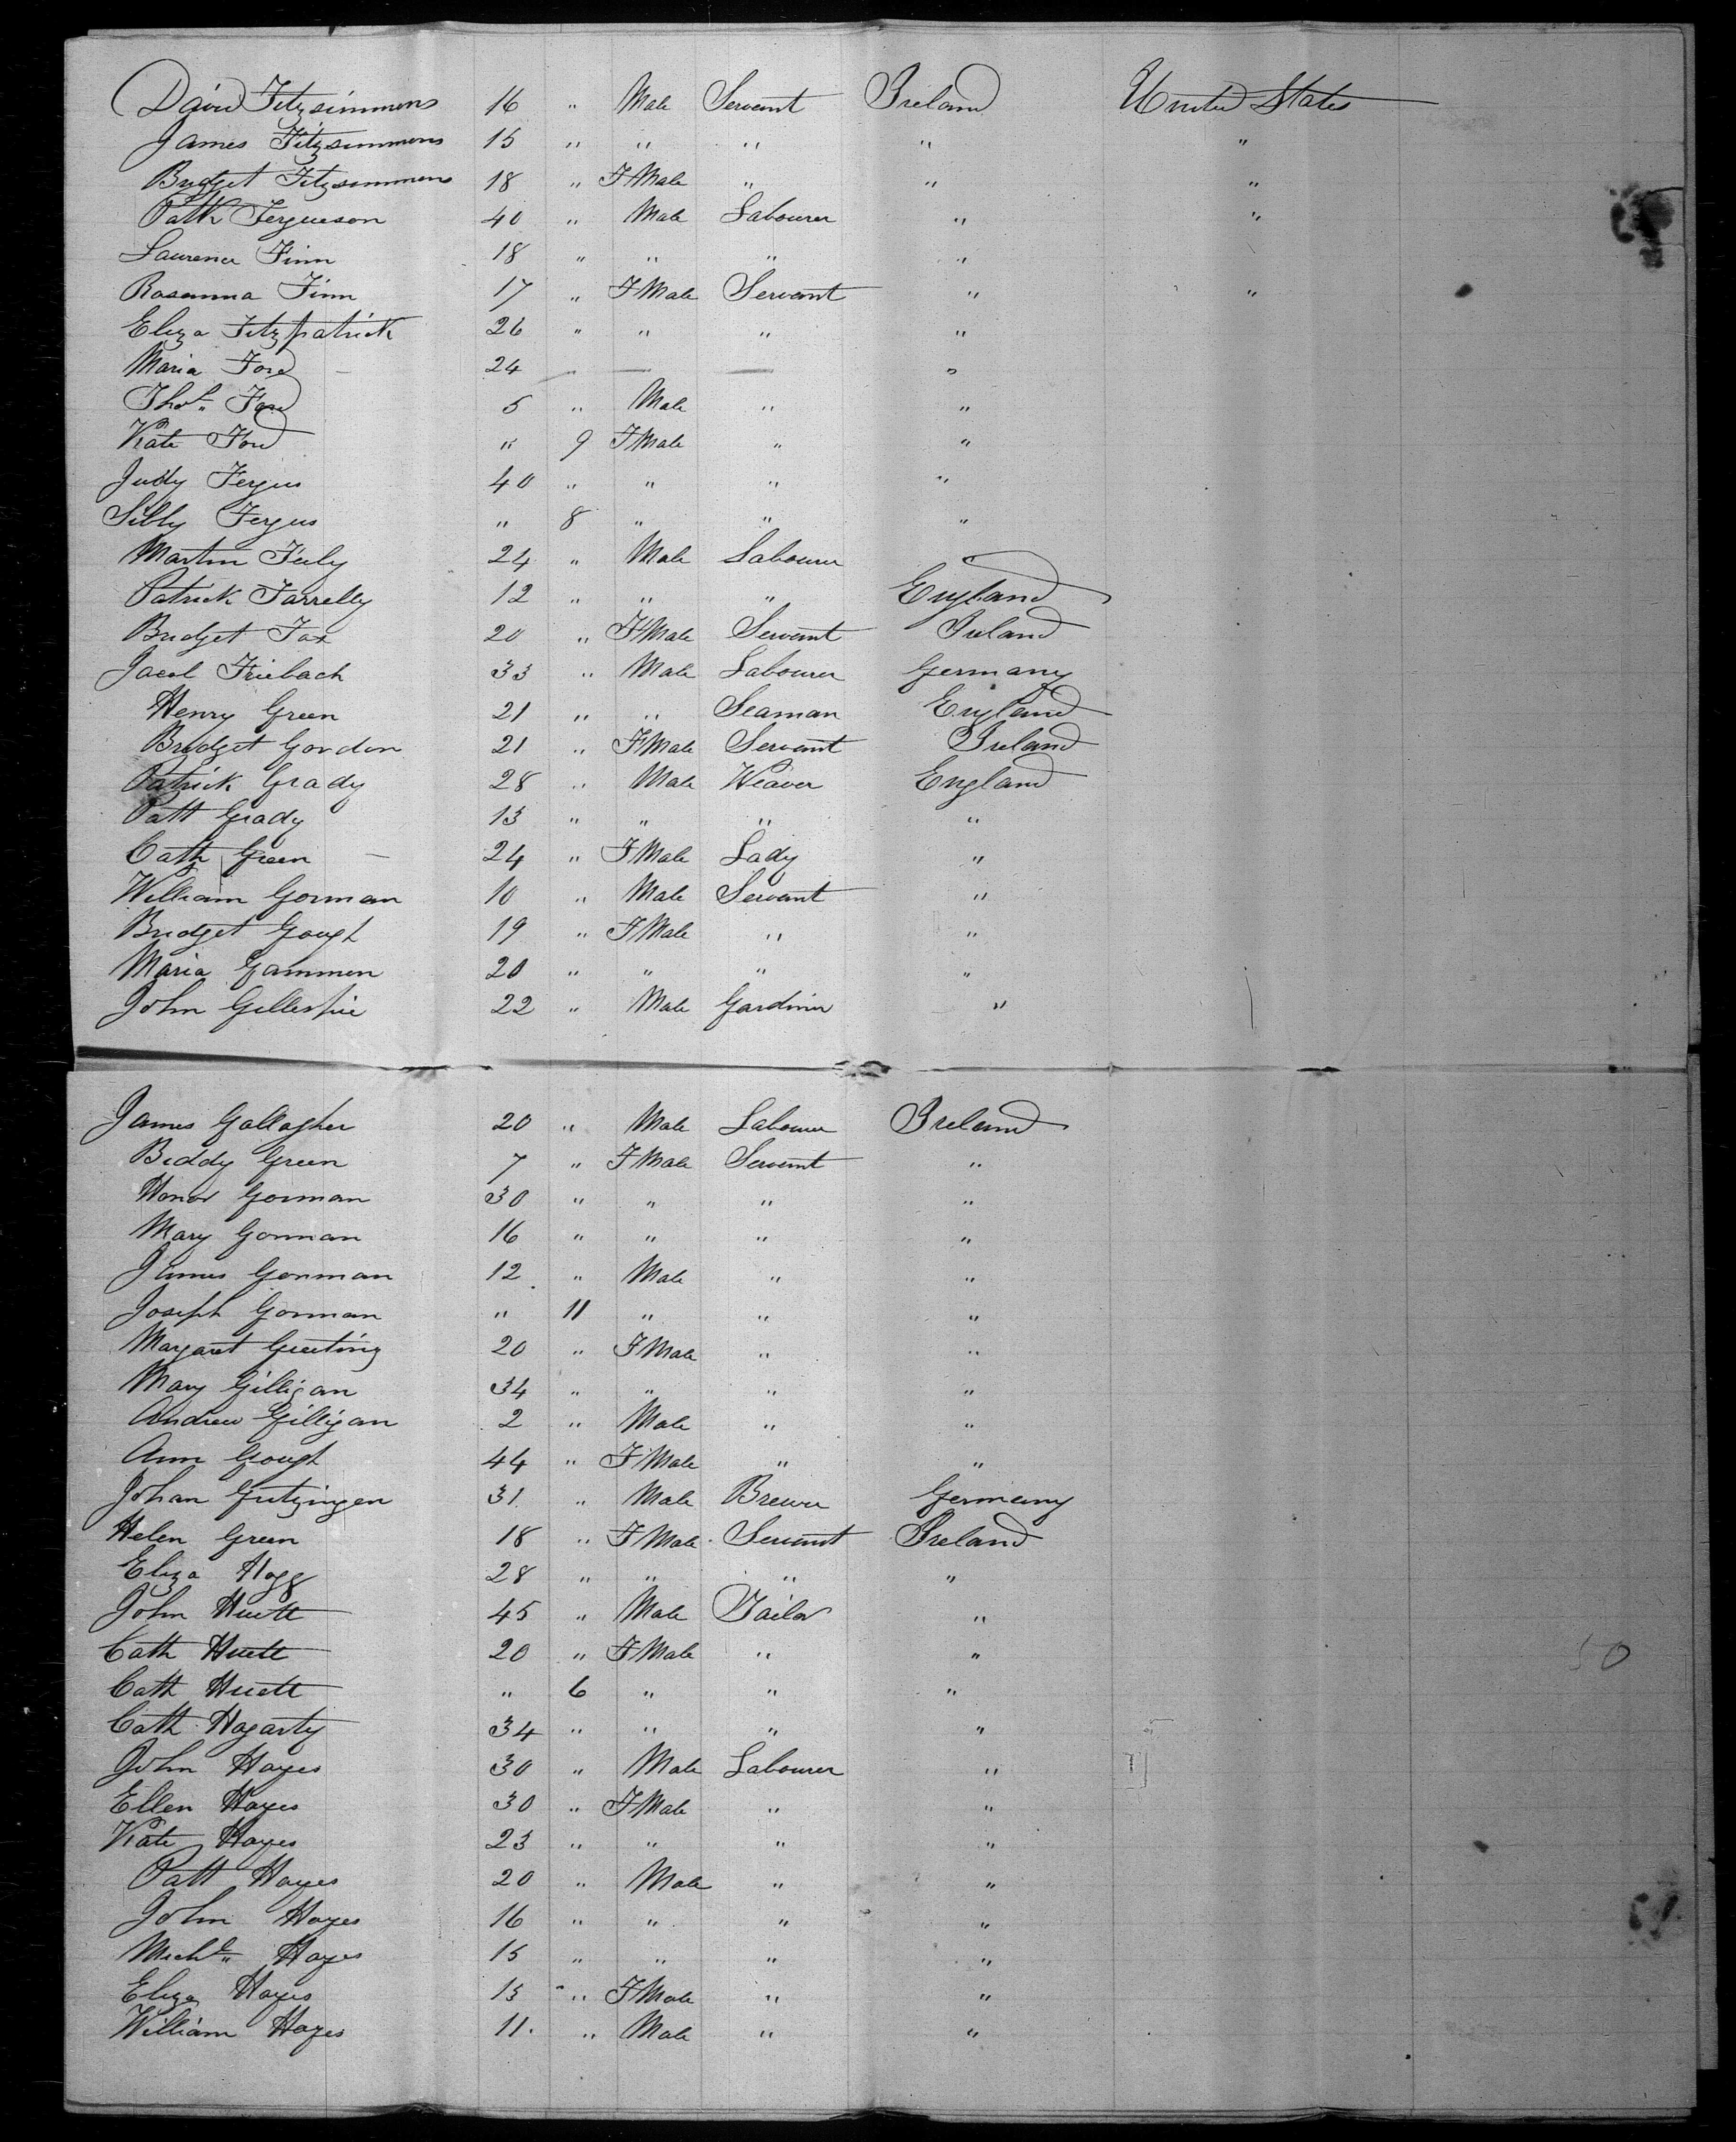 David Fitzsimmons 16 " Male Servant Ireland United States
James Fitzsimmons 15 " " " " "
Bridget Fitzsimmons 18 " F Male " " "
Patk Fergueson 40 " Male Labourer " "
Laurence Finn 18 " " " "
Rosanna Finn 17 " F Male Servant " "
Eliza Fitzpatrick 26 " " " "
Maria Ford 24 " — — "
Thos. Ford 5 " Male " "
Kate Ford " 9 F Male " "
Judy Fergus 40 " " " "
Sibby Fergus " 8 " " "
Martin Feely 24 " Male Labourer
Patrick Farrelly 12 " " " England
Bridget Fox 20 " F Male Servant Ireland
Jacob Friebach 33 " Male Labourer Germany
Henry Green 21 " " Seaman England
Bridget Gordon 21 " F Male Servant Ireland
Patrick Grady 28 " Male Weaver England
Patt Grady 13 " " " "
Cath Green 24 " F Male Lady "
William Gorman 10 " Male Servant "
Bridget Gough 19 " F Male " "
Maria Gammon 20 " " " "
John Gillespie 22 " Male Gardiner "
James Gallagher 20 " Male Labourer Ireland
Biddy Green 7 " F Male Servant "
Honor Gorman 30 " " " "
Mary Gorman 16 " " " "
James Gorman 12 " Male " "
Joseph Gorman " 11 " " "
Margaret Greeting 20 " F Male " "
Mary Gilligan 34 " " " "
Andrew Gilligan 2 " Male " "
Ann Gough 44 " F Male " "
Johan Gutzingen 31 " Male Brewer Germany
Helen Green 18 " F Male Servant Ireland
Eliza Hogg 28 " " " "
John Huett 45 " Male Tailor "
Cath Huett 20 " F Male " "
Cath Huett " 6 " " "
Cath Hagarty 34 " " " "
John Hayes 30 " Male Labourer "
Ellen Hayes 30 " F Male " "
Kate Hayes 23 " " " "
Patt Hayes 20 " Male " "
John Hayes 16 " " " "
Michl. Hayes 15 " " " "
Eliza Hayes 13 " F Male " "
William Hayes 11 " Male " "
50